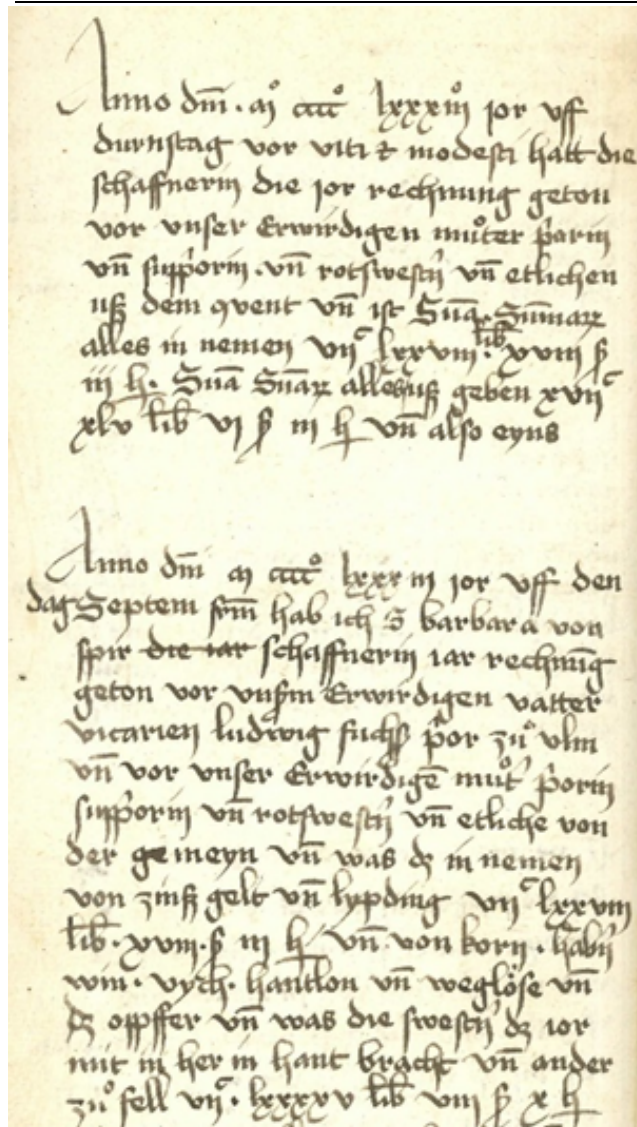 Anno dm̄ · mͦ ccccͦ lxxxiiiͦ ior vff
durnstag vor viti & modesti hatt die
schaffnerin die ior rechnung geton
vor vnser Erwirdigen muͦter p̄orin
vn̄ supp̄orin · vn̄ rotswestn̄ vn̄ etlichen
uß dem ꝯvent vn̄ ist Sūa · Sūmarꝝ
alles in nemen vijᶜ lxxviij lib̄ · xviij ꝭ
iij h · Sūā Sūarꝝ alles uß geben xvijᶜ
xlv lib̄ vj ꝭ iij h vn̄ also eyns
Anno dm̄ m ccccͦ lxxxiij ior vff den
dag Septem frm̄ hab ich S barbara von
spir die iar schaffnerin iar rechnūg
geton vor vnsm̄ Erwirdigen vatter
vicarien ludwig fuchß p̄or zuͦ vlm
vn̄ vor vnser Erwirdigē muͦt̄ p̄orin
supp̄orin vn̄ rotswestn̄ vn̄ etliche von
der gemeyn vn̄ was dz in nemen
von zinß gelt vn̄ lypding vijᶜ lxxviij
lib̄ · xviij · ꝭ iij h vn̄ von korn · habn̄
win · vych · hantlon vn̄ weglöse vn̄
dz opffer vn̄ was die swestn̄ dz ior
mit in her in hant bracht vn̄ ander
zuͦ fell vijᶜ · lxxxxv lib̄ viij ꝭ x h